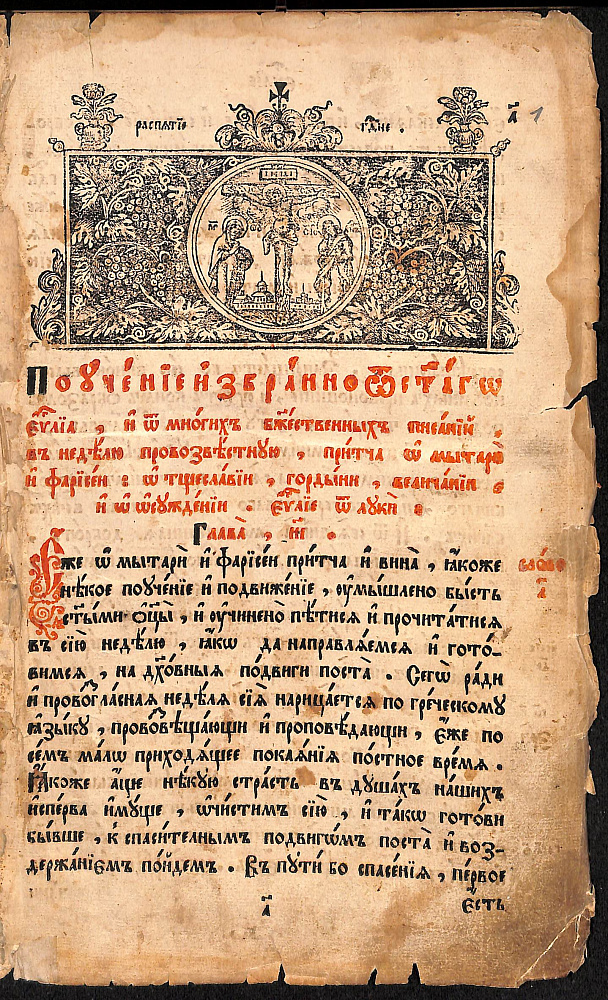 а҃ 1
распѧтїе гдⷭ҇не .
І Н Ц І
Поꙋче́нїе и҆збра́нно ѿ ст҃а́гѡ
є҆ѵⷢ҇лїа , и҆ ѿ мно́гихъ бж҃е́ственныхъ писа́нїй ,
въ недѣ́лю провозвѣ́стную , при́тча ѡ҆ мытарѝ
и҆ фарїсе́и : ѡ҆ тщесла́вїи , горды́ни , велича́нїи :
и҆ ѡ҆ ѡ҆сꙋжде́нїи . є҆ѵⷢ҇лїе ѿ лꙋкѝ :
Глава̀ , н҃і .
Е҆́же ѡ҆ мытарѝ и҆ фарїсе́и при́тча и҆ вина̀ , ꙗ҆́коже
нѣ́кое поꙋче́нїе и҆ подвиже́нїе , ᲂу҆мы́шлено бы́сть
ст҃ы́ми ѻ҆ц҃ы̀ , и҆ ᲂу҆чинено̀ пѣ́тисѧ и҆ прочита́тисѧ
въ сїю̀ недѣ́лю , ꙗ҆́кѡ да направлѧ́емсѧ и҆ гото́-
вимсѧ , на дꙋхо́вныѧ по́двиги поста̀ . Сегѡ̀ ра́ди
и҆ провогла́снаѧ недѣ́лѧ сїѧ̀ нарица́етсѧ по гре́ческомꙋ
ꙗ҆зы́кꙋ , провозвѣща́ющи и҆ проповѣ́дающи , є҆́же по
се́мъ ма́лѡ приходѧ́щее покаѧ́нїѧ по́стное вре́мѧ .
Ꙗ҆́коже а҆́ще нѣ́кꙋю стра́сть въ дꙋша́хъ на́шихъ
и҆спе́рва и҆мꙋ́ще , ѡ҆чи́стимъ сїю̀ , и҆ та́кѡ гото́ви
бы́вше , к спаси́телнымъ по́двигѡмъ поста̀ и҆ воз-
держа́нїємъ по́йдемъ . Въ пꙋти́ бо спасе́нїѧ , пе́рвое
є҆́сть
а҃